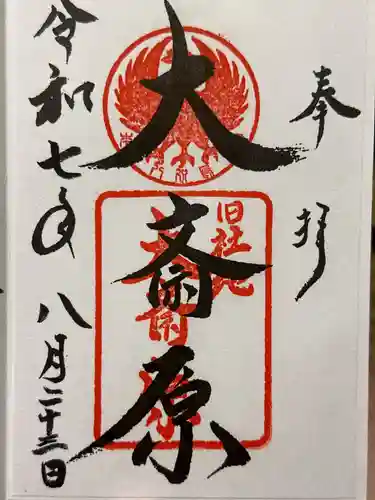 奉拝
大斎原
旧社地
大斎原
令和七年八月二十三日